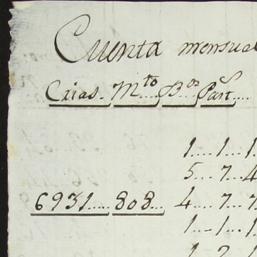 Cuenta mensual
Crias. Mto Bos Part.
1....1....1
5..7..4
6931.....808... 4...7..7
1..1..1
1 2 1